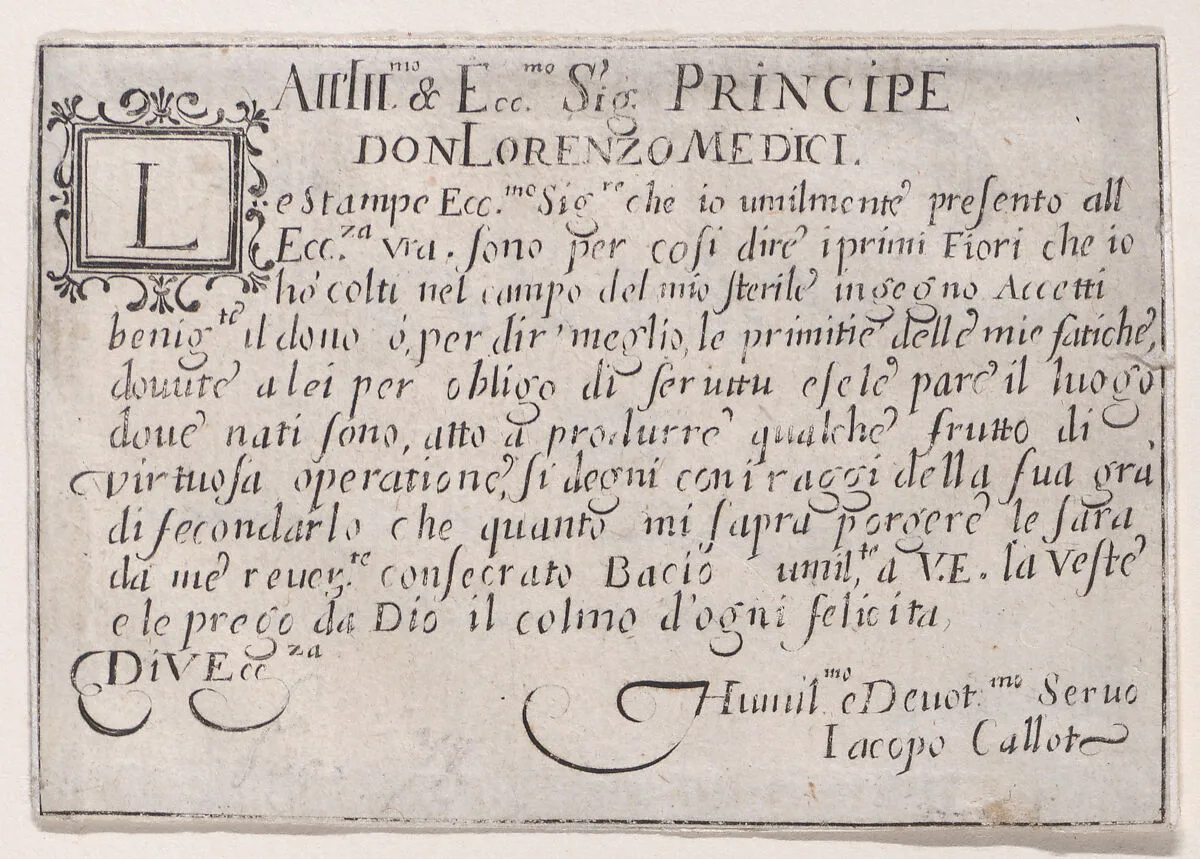 All'Ill.mo & Ecc.mo Sig. PRINCIPE
DON LORENZO MEDICI.
Le Stampe Ecc.mo Sigre che io umilmente presento all
Ecc.za vra. sono per cosi dire i primi Fiori che io
hò colti nel campo del mio sterile ingegno Accetti
benig.te il dono ó, per dir' meglio, le primitie delle mie fatiche,
douute a lei per obligo di seruitu e se le pare il luogo
doue nati sono, atto à produrre qualche frutto di
virtuosa operatione, si degni con i raggi della sua grà
di fecondarlo che quanto mi sapra porgere le sara
da me reuer.te consecrato Bacio umil.te a V.E. la Veste
e le prego da Dio il colmo d'ogni felicita,
Di V Eccza
Humil.mo e Deuot.mo Seruo
Iacopo Callot